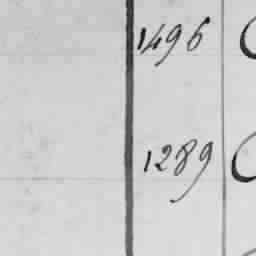 1496
1289